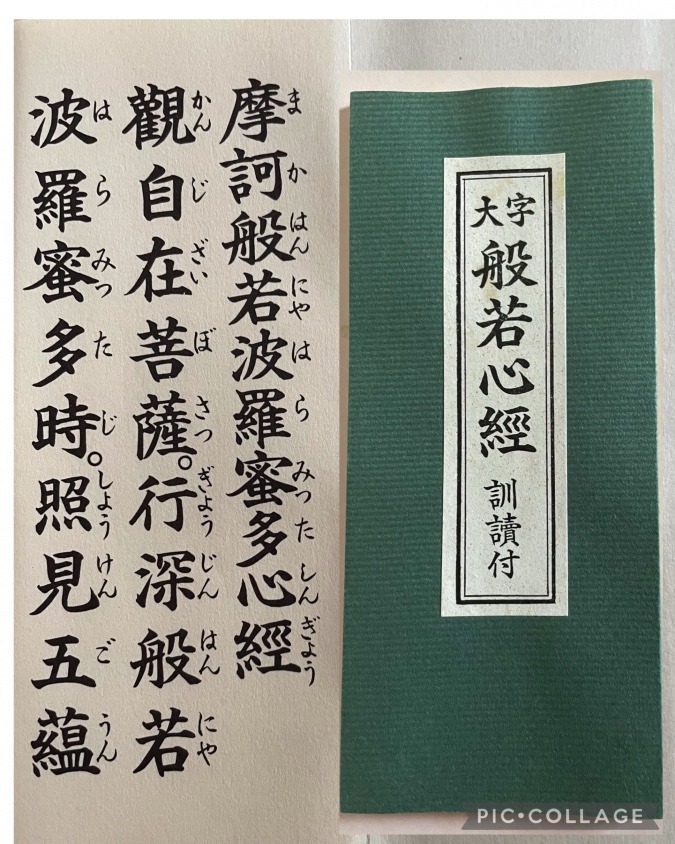 摩訶般若波羅蜜多心經
まかはんにやはらみつたしんぎょう
觀自在菩薩。行深般若
かんじざいぼさつぎょうじんはんにや
波羅蜜多時。照見五蘊
はらみつたじしょうけんごうん
大字
般若心經
訓讀付
PIC•COLLAGE